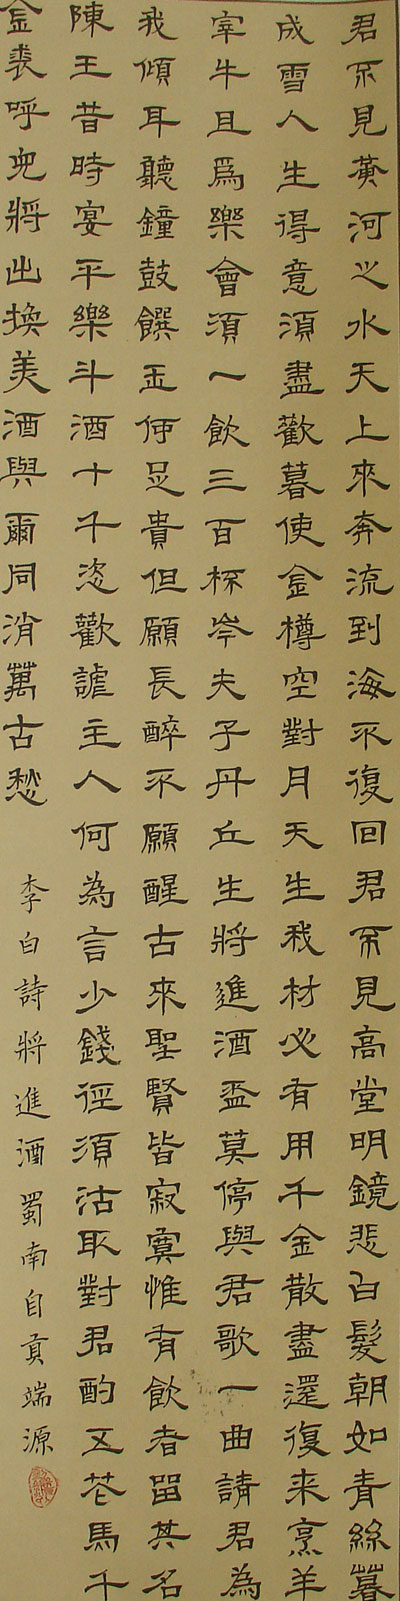 君不見黃河之水天上來奔流到海不復回君不見高堂明鏡悲白髮朝如青絲暮
成雪人生得意須盡歡暮使金樽空對月天生我材必有用千金散盡還復来烹羊
宰牛且爲樂會須一飲三百杯岑夫子丹丘生將進酒盃莫停與君歌一曲請君為
我傾耳聽鐘鼓饌玉何足貴但願長醉不願醒古來聖賢皆寂寞惟有飲者留其名
陳王昔時宴平樂斗酒十千恣歡謔主人何為言少錢徑須沽取對君酌五花馬千
金裘呼兒將出換美酒與爾同消萬古愁
李白詩將進酒蜀南自貢端源